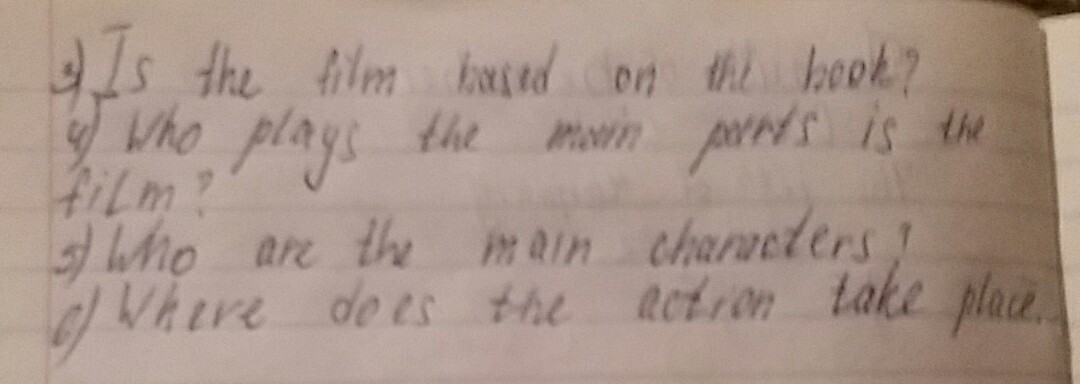 3) Is the film based on the book?
4) Who plays the main parts is the
film?
5) Who are the main characters?
6) Where does the action take place.